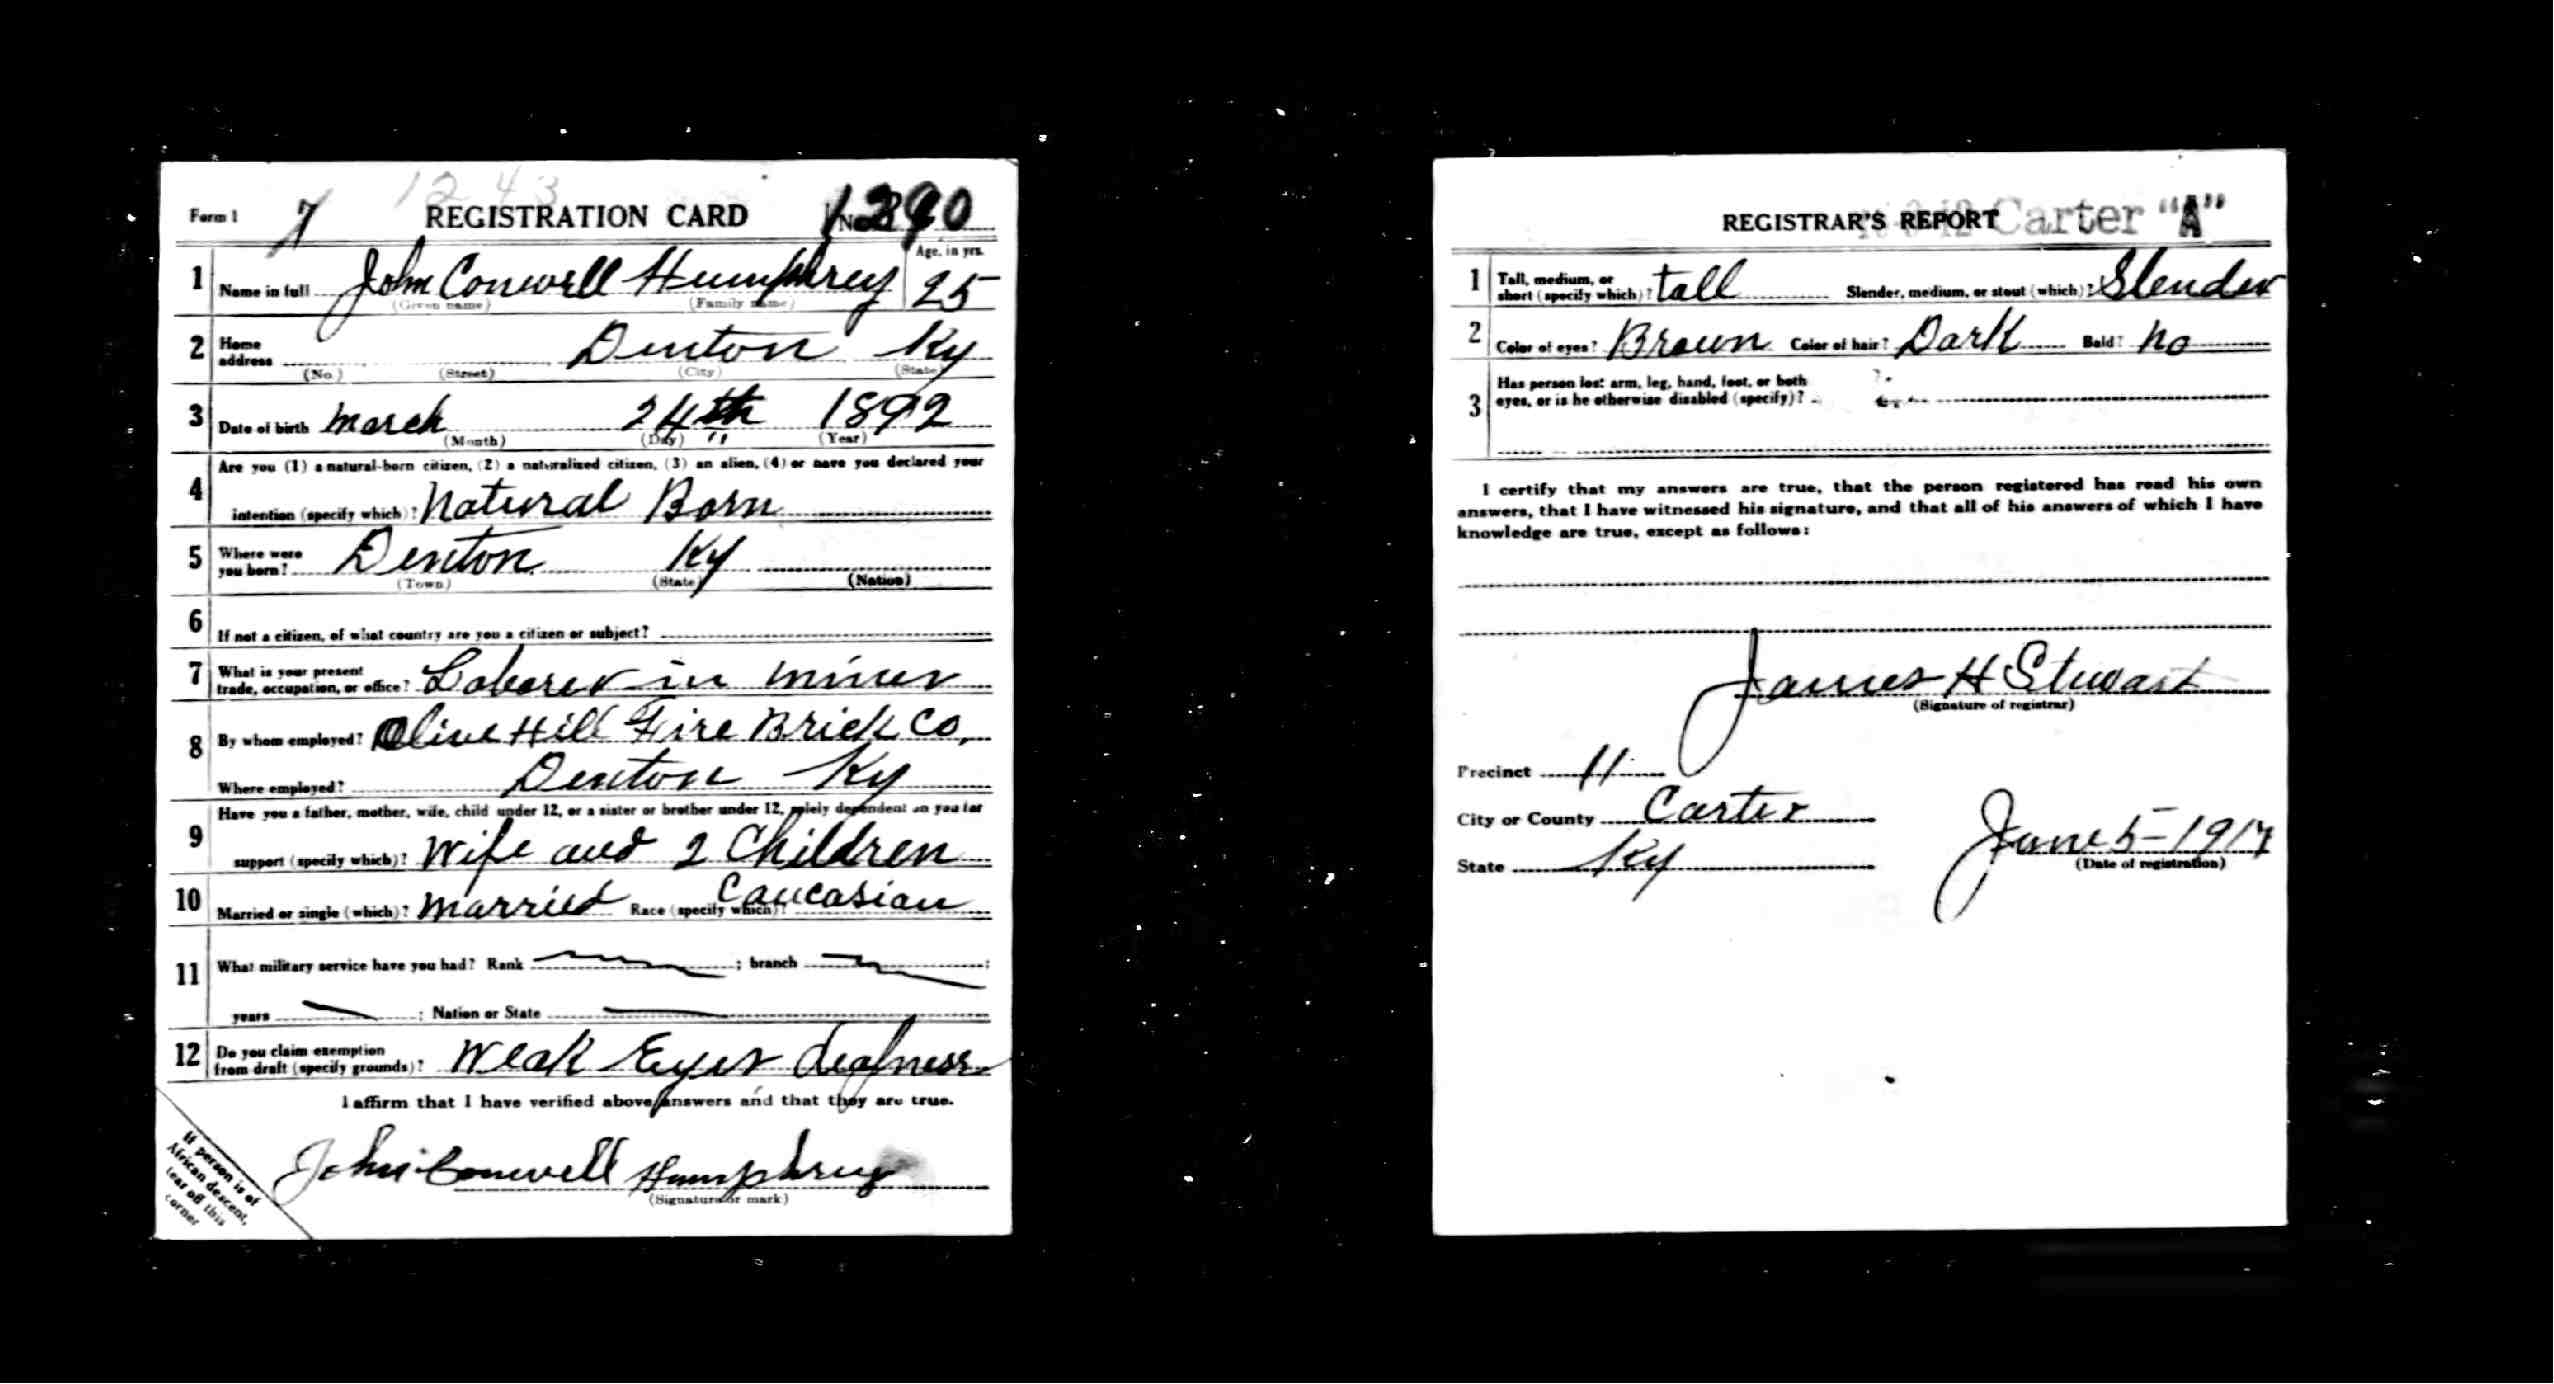 1243
Form 1 7 REGISTRATION CARD No. 1290
Age, in yrs.
1 Name in full John Conwell Humphrey 25
(Given name) (Family name)
2 Home address Denton Ky
(No.) (Street) (City) (State)
3 Date of birth March 24th 1892
(Month) (Day) (Year)
4 Are you (1) a natural-born citizen, (2) a naturalized citizen, (3) an alien, (4) or have you declared your
intention (specify which)? Natural Born
5 Where were you born? Denton Ky
(Town) (State) (Nation)
6 If not a citizen, of what country are you a citizen or subject?
7 What is your present trade, occupation, or office? Laborer in mines
8 By whom employed? Olive Hill Fire Brick Co,
Where employed? Denton Ky
9 Have you a father, mother, wife, child under 12, or a sister or brother under 12, solely dependent on you for
support (specify which)? Wife and 2 Children
10 Married or single (which)? Married Race (specify which)? Caucasian
11 What military service have you had? Rank ; branch ;
years ; Nation or State
12 Do you claim exemption from draft (specify grounds)? Weak Eyes deafness
I affirm that I have verified above answers and that they are true.
John Conwell Humphrey
(Signature or mark)
If person is of
African descent,
tear off this
corner
REGISTRAR'S REPORT Carter "A"
1 Tall, medium, or short (specify which)? tall Slender, medium, or stout (which)? Slender
2 Color of eyes? Brown Color of hair? Dark Bald? No
3 Has person lost arm, leg, hand, foot, or both
eyes, or is he otherwise disabled (specify)?
I certify that my answers are true, that the person registered has read his own
answers, that I have witnessed his signature, and that all of his answers of which I have
knowledge are true, except as follows:
James H Stewart
(Signature of registrar)
Precinct 11
City or County Carter
State Ky
June 5 - 1917
(Date of registration)